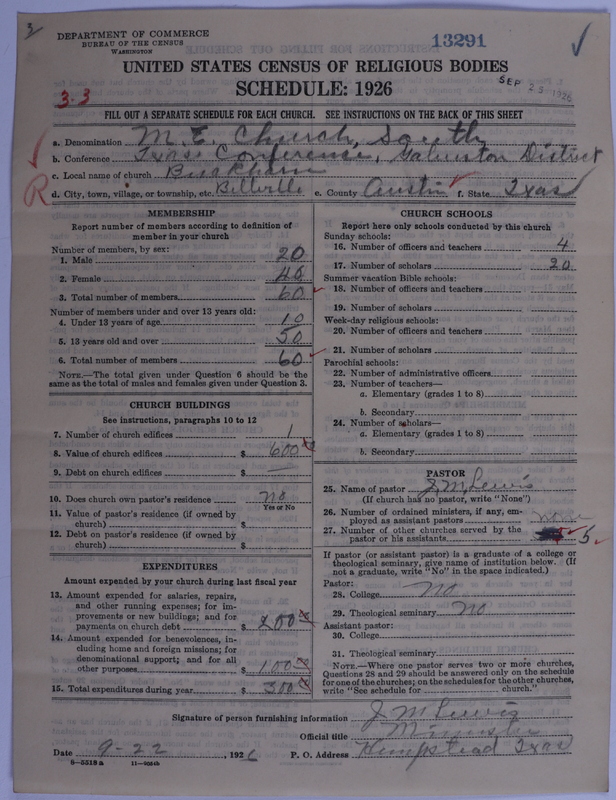 3
DEPARTMENT OF COMMERCE
BUREAU OF THE CENSUS
WASHINGTON
13291
UNITED STATES CENSUS OF RELIGIOUS BODIES
SCHEDULE: 1926
SEP 25 1926
3.3
FILL OUT A SEPARATE SCHEDULE FOR EACH CHURCH. SEE INSTRUCTIONS ON THE BACK OF THIS SHEET
a. Denomination M. E. Church, South
b. Conference Texas Conference, Galveston District
c. Local name of church
R
d. City, town, village, or township, etc. Bellville e. County Austin f. State Texas
MEMBERSHIP
Report number of members according to definition of
member in your church
Number of members, by sex:
1. Male 20
2. Female 40
3. Total number of members 60
Number of members under and over 13 years old:
4. Under 13 years of age 10
5. 13 years old and over 50
6. Total number of members 60
NOTE.—The total given under Question 6 should be
same as the total of males and females given under Question 3.
CHURCH BUILDINGS
See instructions, paragraphs 10 to 12
7. Number of church edifices 1
8. Value of church edifices $ 600
9. Debt on church edifices $ —
10. Does church own pastor's residence no
Yes or No
11. Value of pastor's residence (if owned by
church) $
12. Debt on pastor's residence (if owned by
church) $
EXPENDITURES
Amount expended by your church during last fiscal year
13. Amount expended for salaries, repairs,
and other running expenses; for im-
provements or new buildings; and for
payments on church debt $ 200
14. Amount expended for benevolences, in-
cluding home and foreign missions; for
denominational support; and for all
other purposes $ 100
15. Total expenditures during year $ 300
CHURCH SCHOOLS
Report here only schools conducted by this church
Sunday schools:
16. Number of officers and teachers 4
17. Number of scholars 20
Summer vacation Bible schools:
18. Number of officers and teachers
19. Number of scholars
Week-day religious schools:
20. Number of officers and teachers
21. Number of scholars
Parochial schools:
22. Number of administrative officers
23. Number of teachers—
a. Elementary (grades 1 to 8)
b. Secondary
24. Number of scholars—
a. Elementary (grades 1 to 8)
b. Secondary
PASTOR
25. Name of pastor J. M. Lewis
(If church has no pastor, write "None")
26. Number of ordained ministers, if any, em-
ployed as assistant pastors none
27. Number of other churches served by the
pastor or his assistants 5
If pastor (or assistant pastor) is a graduate of a college or
theological seminary, give name of institution below. (If
not a graduate, write "No" in the space indicated.)
Pastor:
28. College No
29. Theological seminary No
Assistant pastor:
30. College
31. Theological seminary
NOTE.—Where one pastor serves two or more churches,
Questions 28 and 29 should be answered only on the schedule
for one of the churches; on the schedules for the other churches,
write "See schedule for church."
Signature of person furnishing information J M Lewis
Official title Minister
Date 9-22, 1926 P. O. Address Hempstead Texas
8-5518a 11-9864b